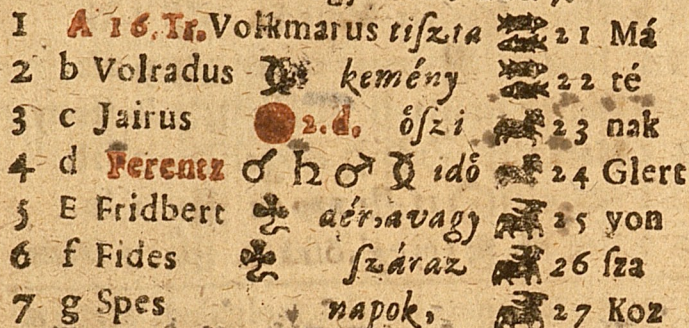 1 A 16. Tr. Volkmarus tiſzta 21 Má
2 b Volradus kemény 22 té
3 c Jairus 2. d. öſzi 23 nak
4 d Ferentz ☌ ♄ ♂ idő 24 Glert
5 E Fridbert aér, avagy 25 yon
6 f Fides ſzáraz 26 ſza
7 g Spes napok, 27 Koz